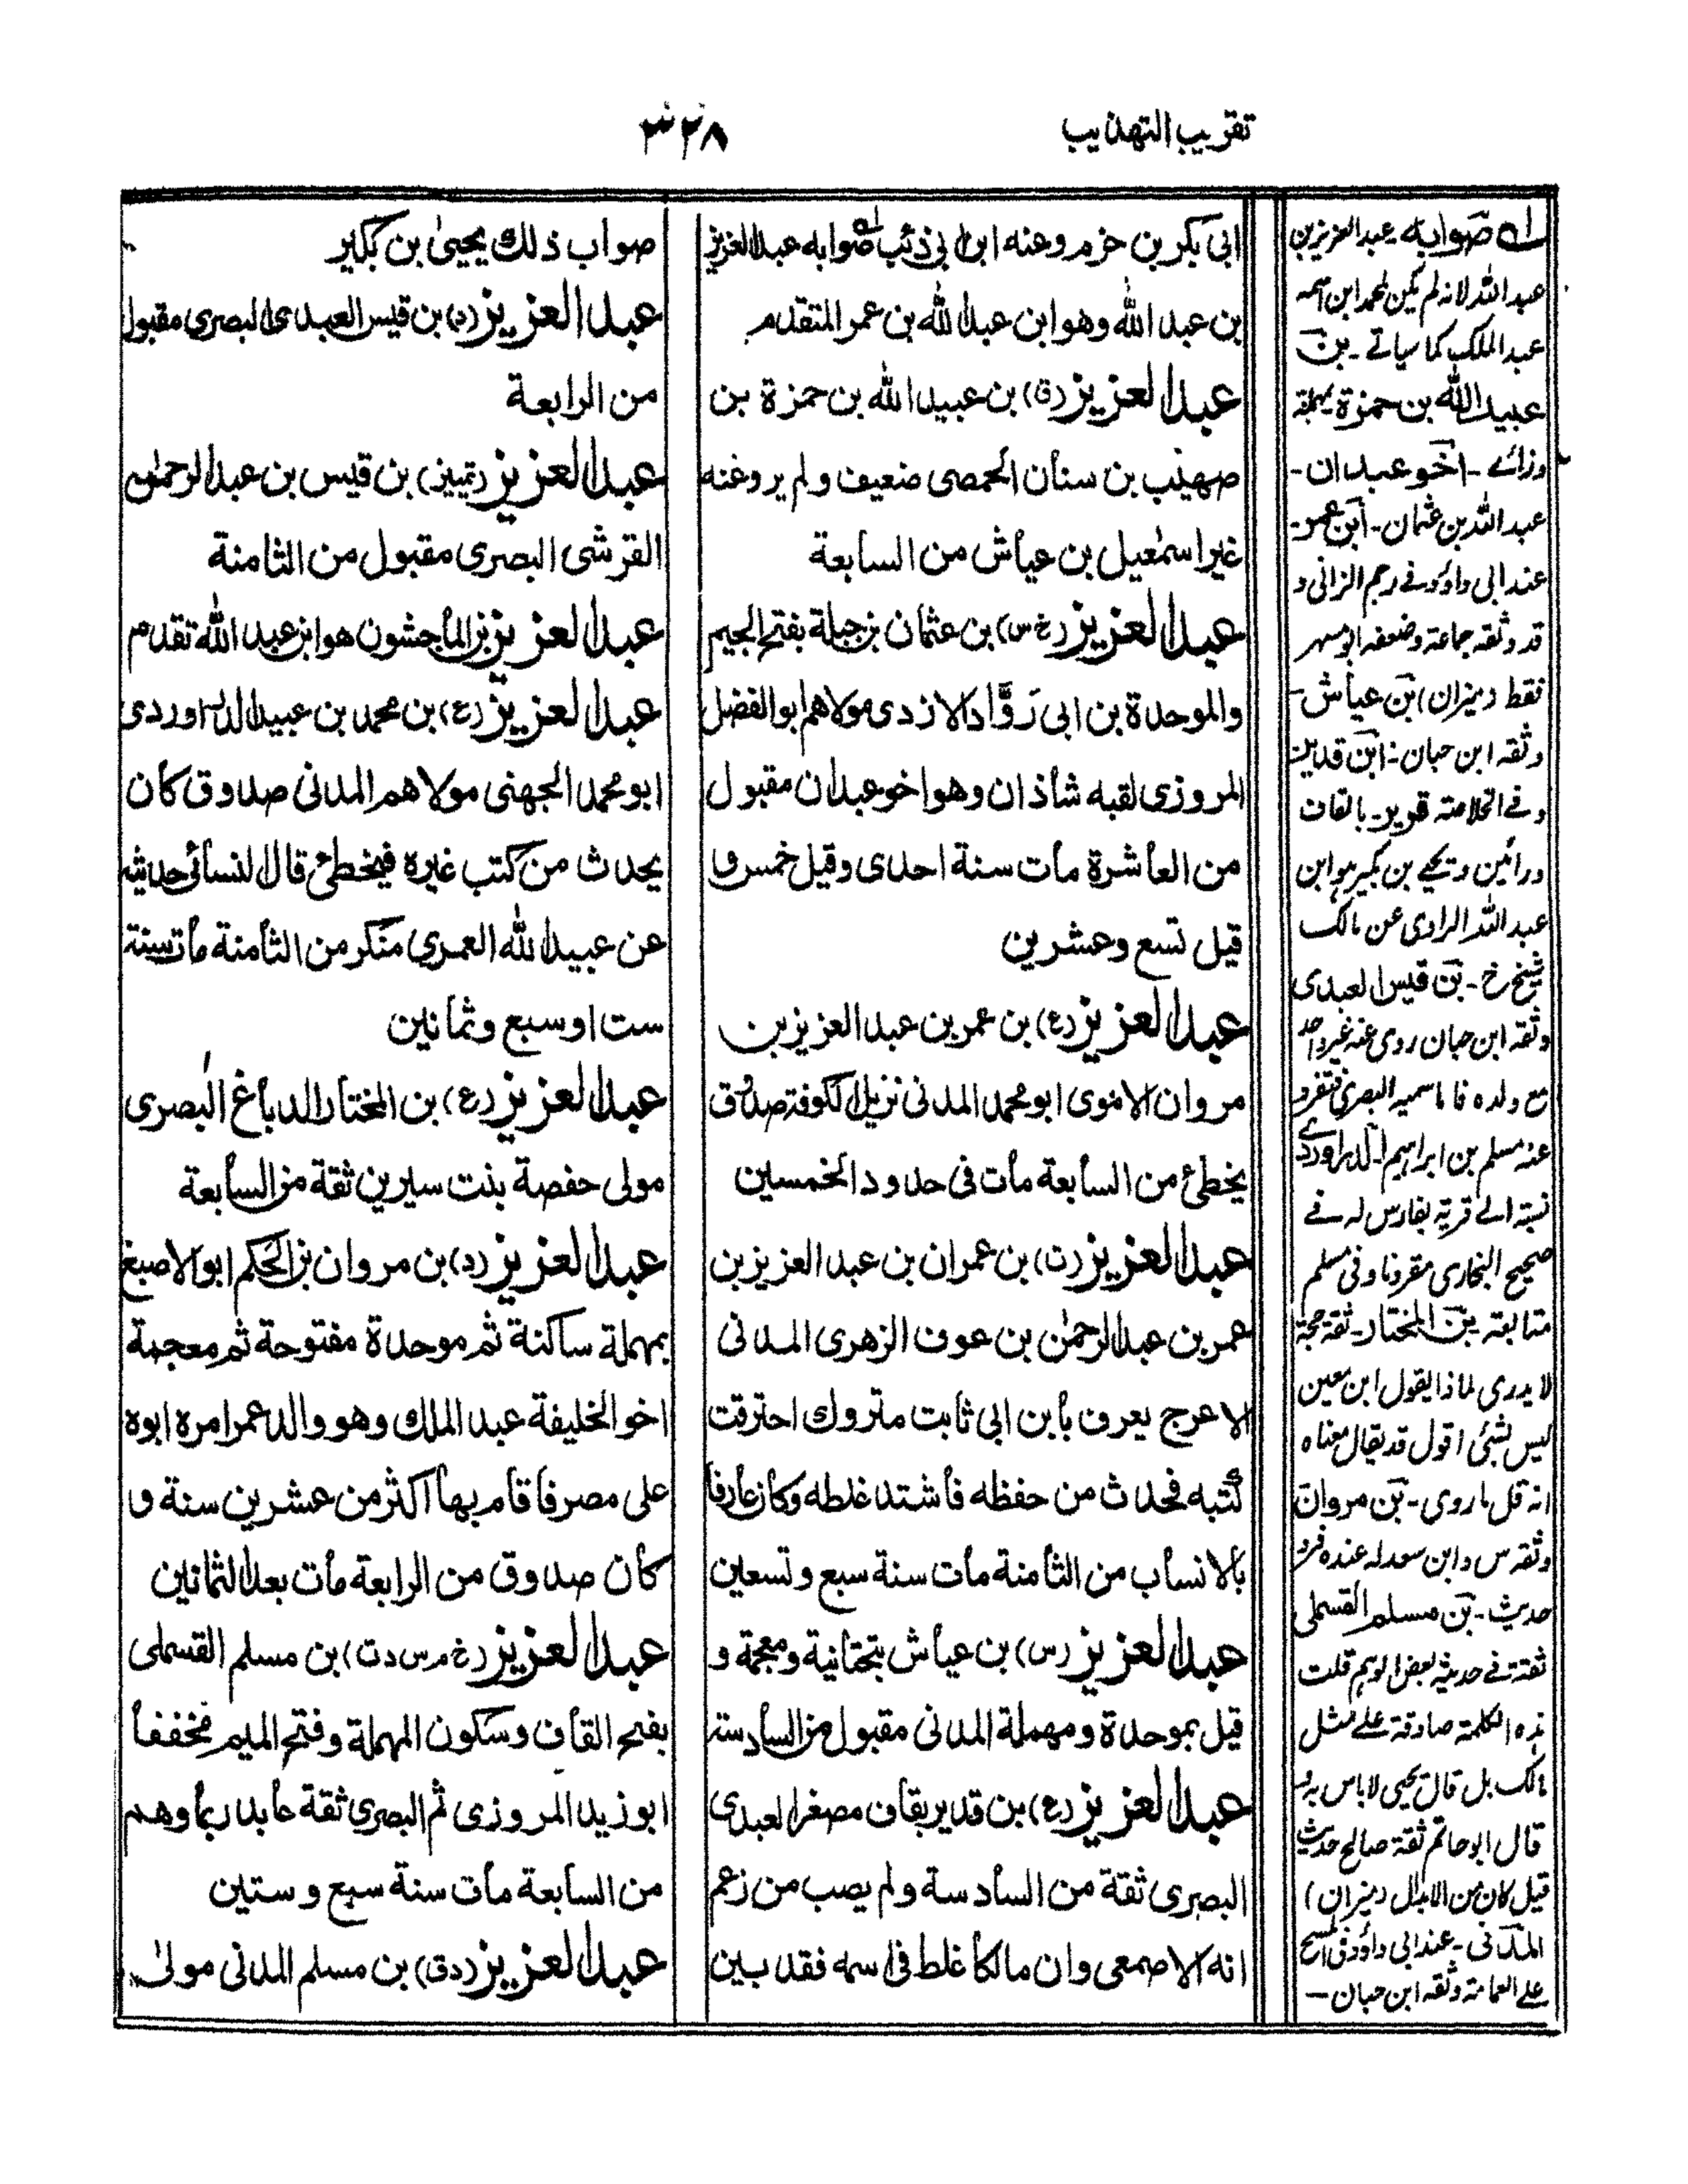 تقريب التهذيب
٣٢٨
ابى بكر بن حزم وعنه ابن ابى ذئب صوابه عبد العزيز
بن عبد الله وهو ابن عبد الله بن عمر المتقدم
عبد العزيز (ق) بن عبيد الله بن حمزة بن
صهيب بن سنان الحمصى ضعيف ولم يرو عنه
غير اسمعيل بن عياش من السابعة
عبد العزيز (خ س) بن عثمان بن جبلة بفتح الجيم
والموحدة بن ابى رَوَّاد الازدى مولاهم ابو الفضل
المروزى لقبه شاذان وهو اخو عبدان مقبول
من العاشرة مات سنة احدى وقيل خمس و
قيل تسع وعشرين
عبد العزيز (ع) بن عمر بن عبد العزيز بن
مروان الاموى ابو محمد المدنى نزيل الكوفة صدوق
يخطئ من السابعة مات فى حدود الخمسين
عبد العزيز (ت) بن عمران بن عبد العزيز بن
عمر بن عبد الرحمٰن بن عوف الزهرى المدنى
الاعرج يعرف بابن ابى ثابت متروك احترقت
كتبه فحدث من حفظه فاشتد غلطه وكان عارفا
بالانساب من الثامنة مات سنة سبع وتسعين
عبد العزيز (س) بن عياش بتحتانية ومعجمة و
قيل بموحدة ومهملة المدنى مقبول من السادسة
عبد العزيز (ع) بن قدير بقاف مصغر العبدى
البصرى ثقة من السادسة ولم يصب من زعم
انه الاصمعى وان مالكا غلط فى اسمه فقد بين
صواب ذلك يحيىٰ بن بكير
عبد العزيز (د) بن قيس العبدى البصرى مقبول
من الرابعة
عبد العزيز (تمييز) بن قيس بن عبد الرحمٰن
القرشى البصرى مقبول من الثامنة
عبد العزيز بن الماجشون هو ابن عبد الله تقدم
عبد العزيز (ع) بن محمد بن عبيد الدراوردى
ابو محمد الجهنى مولاهم المدنى صدوق كان
يحدث من كتب غيره فيخطئ قال النسائى حديثه
عن عبيد الله العمري منكر من الثامنة مات سنة
ست او سبع وثمانين
عبد العزيز (ع) بن المختار الدباغ البصرى
مولى حفصة بنت سيرين ثقة من السابعة
عبد العزيز (د) بن مروان بن الحكم ابو الاصبغ
بمهملة ساكنة ثم موحدة مفتوحة ثم معجمة
اخو الخليفة عبد الملك وهو والد عمر امره ابوه
على مصر فاقام بها اكثر من عشرين سنة و
كان صدوق من الرابعة مات بعد الثمانين
عبد العزيز (خ م س د ت) بن مسلم القسملى
بفتح القاف وسكون المهملة وفتح الميم مخففا
ابو زيد المروزى ثم البصرى ثقة عابد ربما وهم
من السابعة مات سنة سبع وستين
عبد العزيز (د ق) بن مسلم المدنى مولى
له صوابه عبد العزيز بن
عبد الله لانه لم يكن لمحمد ابن اسمه
عبد الملك كما سياتے ـ بن
عبيد الله بن حمزة بمهملة
وزائے ـ اخو عبدان ـ
عبد الله بن عثمان ـ ابن عمر ـ
عند ابى داؤد فے رجم الزانى و
قد وثقه جماعة وضعفه ابو مسهر
فقط (ميزان) بن عياش ـ
وثقه ابن حبان ـ ابن قدير
وفے الخلاصة قرير ـ بالقاف
ورائين ويحيے بن بكير هو ابن
عبد الله الراوى عن مالك
شيخ خ ـ بن قيس العبدى
وثقه ابن حبان روى عنه غير واحد
مع ولده فاما سميه البصرى فتفرد
عنه مسلم بن ابراهيم ـ الدراوردے
نسبة الے قرية بفارس له فے
صحيح البخارى مقرونا وفى مسلم
متابعة ـ بن المختار ـ ثقة حجة
لا يدرى لماذا يقول ابن معين
ليس بشئ اقول قد يقال معناه
انه قل ما روى ـ بن مروان
وثقه س وابن سعد له عنده فرد
حديث ـ بن مسلم القسملى
ثقة فے حديثه بعض الوهم قلت
هذه الكلمة صادقة علے مثل
مالك بل قال يحيى لا باس به و
قال ابو حاتم ثقة صالح حديث
قيل كان من الابدال (ميزان)
المدنى ـ عند ابى داؤد فى المسح
علے العمامة وثقه ابن حبان ـ